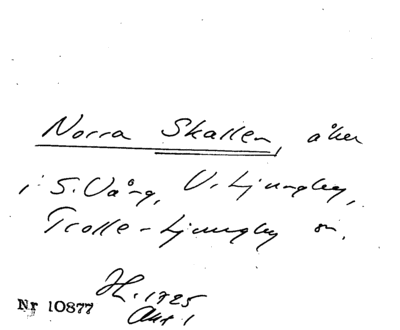 Norra Skallen, åker
i S. Vång, V. Ljungby,
Trolle-Ljungby sn.
H. 1725
Akt 1
Nr 10877